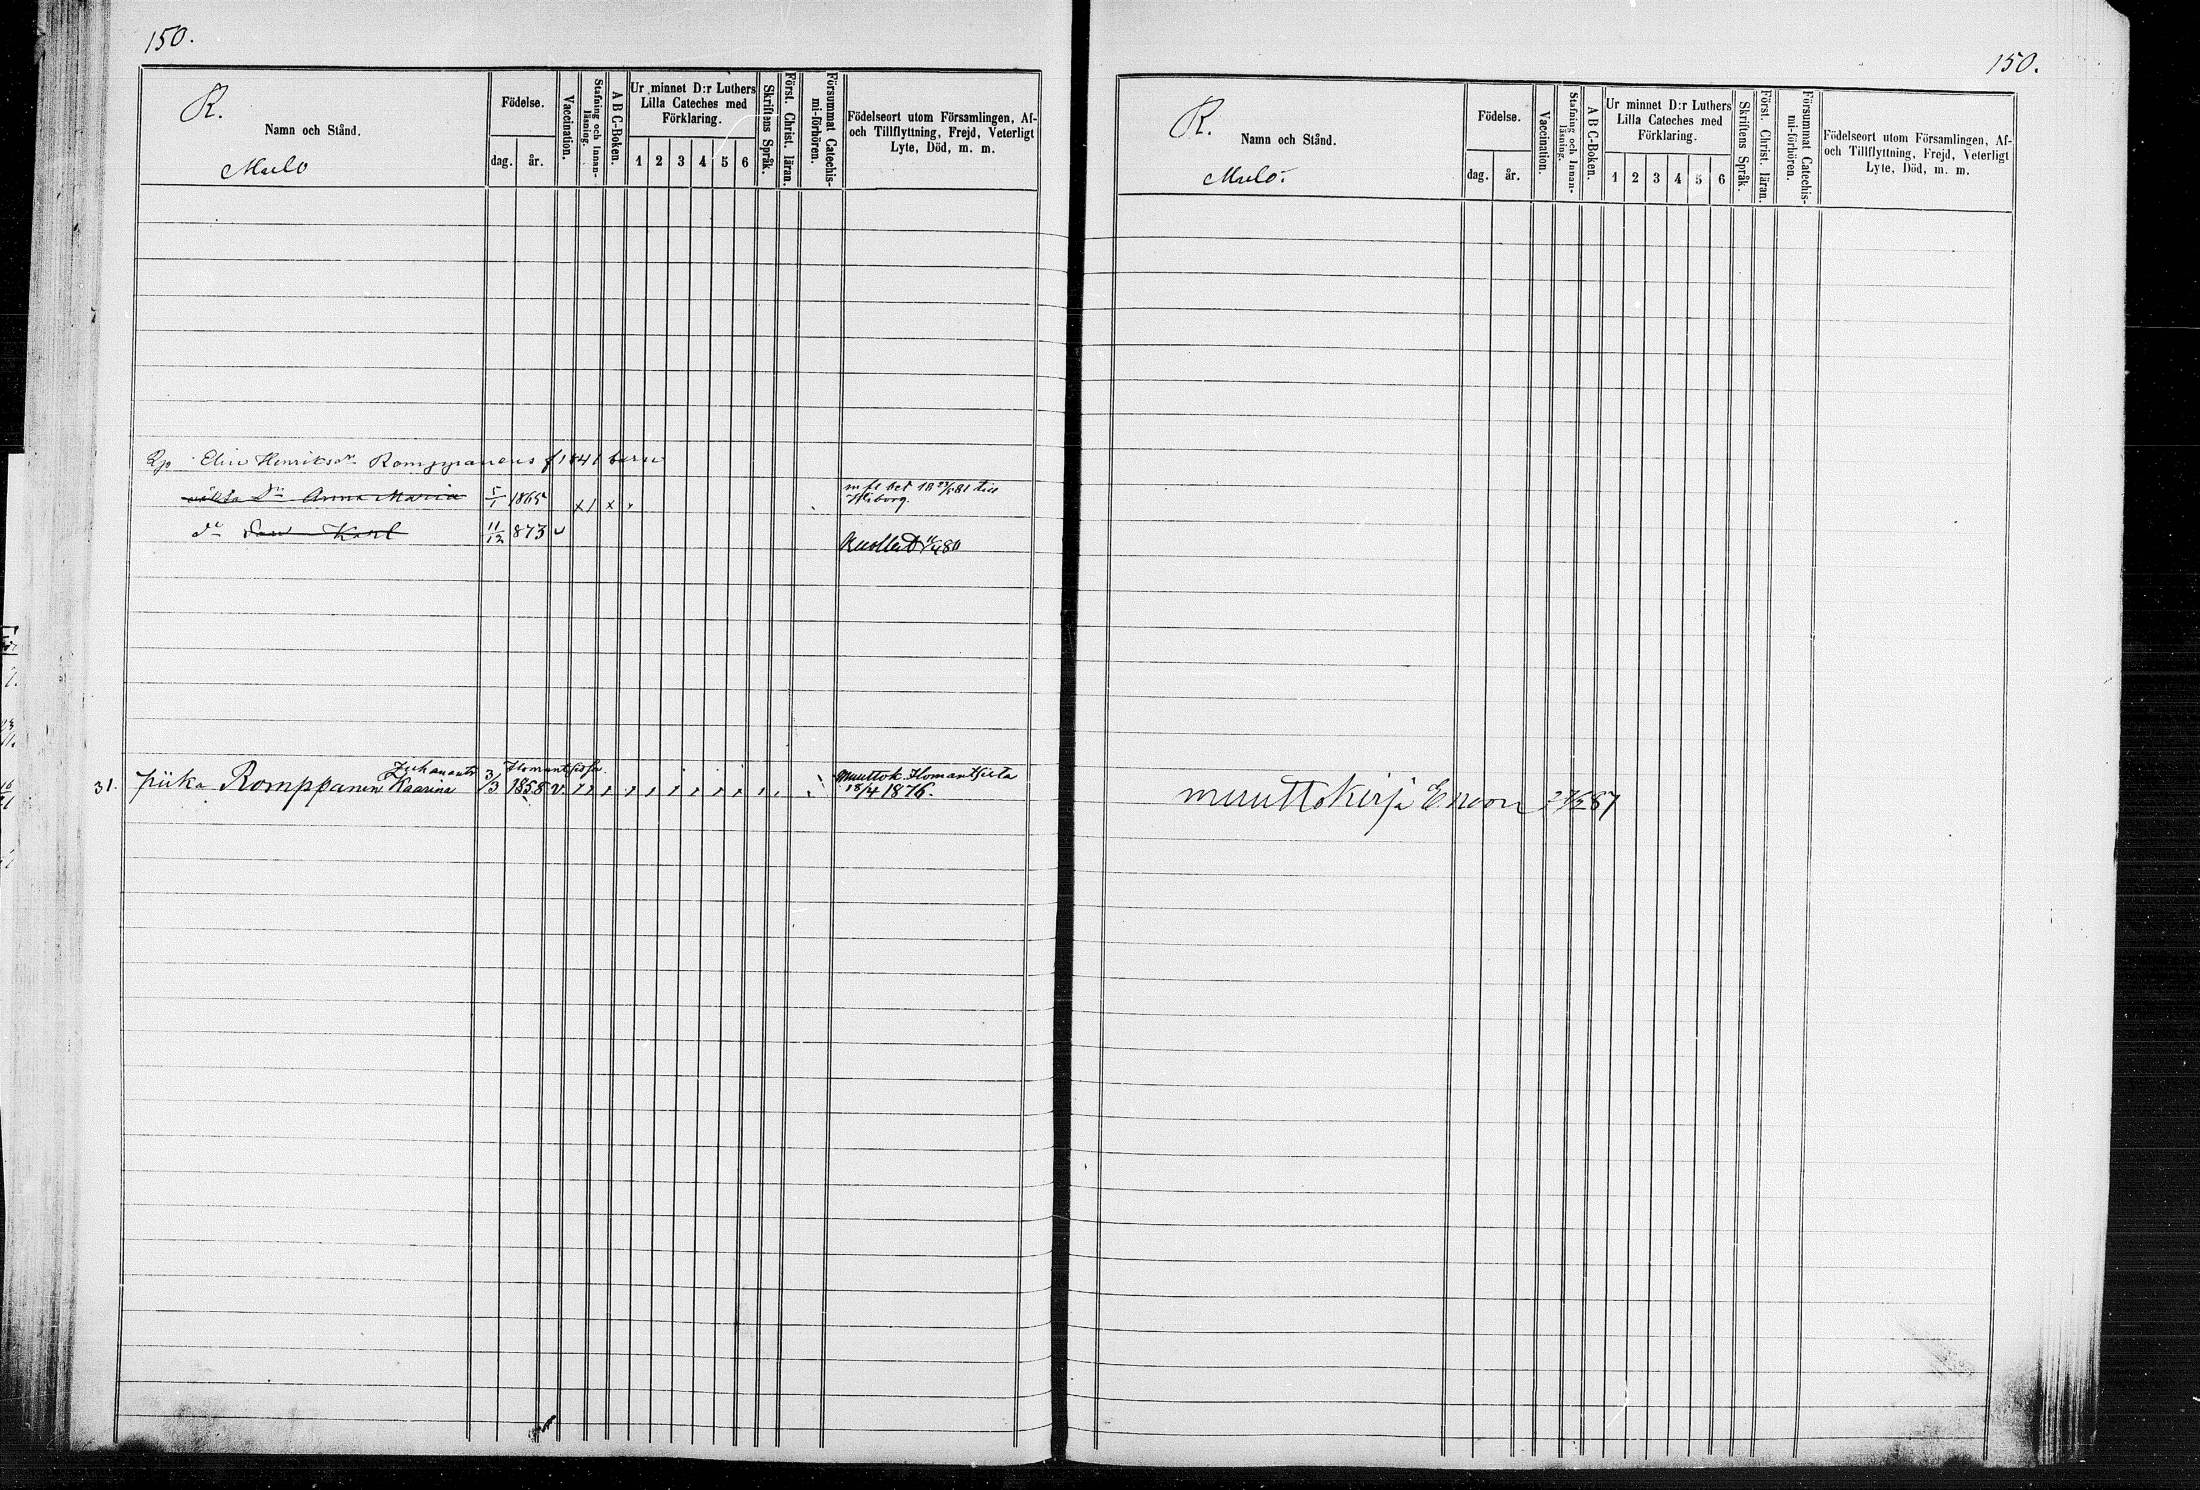 150.
R.
Namn och Stånd.
Mulo
Födelse.
dag. år.
Vaccination.
Stafning och Innan-läsning.
A B C-Boken.
Ur minnet D:r Luthers
Lilla Cateches med
Förklaring.
1 2 3 4 5 6
Skriftens Språk.
Först. Christ. läran.
Försummat Catechis-mi-förhören.
Födelseort utom Församlingen, Af-
och Tillflyttning, Frejd, Veterligt
Lyte, Död, m. m.
Henriks Romppanens f 1841 barn
Anna Maria 5/1 1865 x x
till
Wiborg.
dn Karl 11/12 873 v
Kuollut
31. piika Romppanen Juhanantr
Kaarina 3/3 1858 v Ilomantsissa.
Muuttok. Ilomantsista
18/4 1876.
150.
R.
Namn och Stånd.
Mulo.
Födelse.
dag. år.
Vaccination.
Stafning och Innan-läsning.
A B C-Boken.
Ur minnet D:r Luthers
Lilla Cateches med
Förklaring.
1 2 3 4 5 6
Skriftens Språk.
Först. Christ. läran.
Försummat Catechis-mi-förhören.
Födelseort utom Församlingen, Af-
och Tillflyttning, Frejd, Veterligt
Lyte, Död, m. m.
muuttokirja Enoon 87